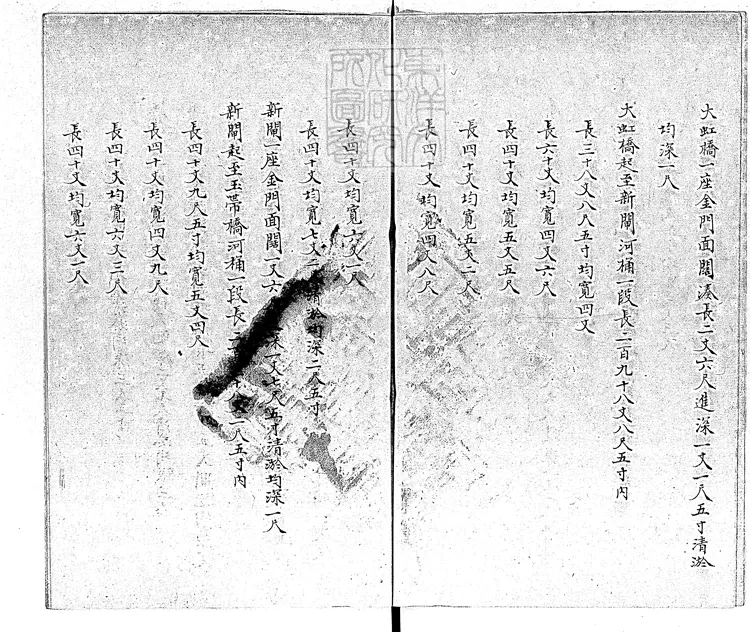 大虹橋一座金門面闊湊長二丈六尺進深一丈一尺五寸清淤
均深二尺
大虹橋起至新閘河桶一段長二百九十八丈八尺五寸內
長三十八丈八尺五寸均寬四丈
長六十丈均寬四丈六尺
長四十丈均寬五丈五尺
長四十丈均寬五丈二尺
長四十丈均寬四丈八尺
長四十丈均寬六丈一尺
長四十丈均寬七丈二 清淤均深二尺五寸
新閘一座金門面闊一丈六 深一丈七尺五寸清淤均深一尺
新閘起至玉帶橋河桶一段長二 十八丈一尺五寸內
長四十丈九尺五寸均寬五丈四尺
長四十丈均寬四丈九尺
長四十丈均寬六丈三尺
長四十丈均寬六丈一尺